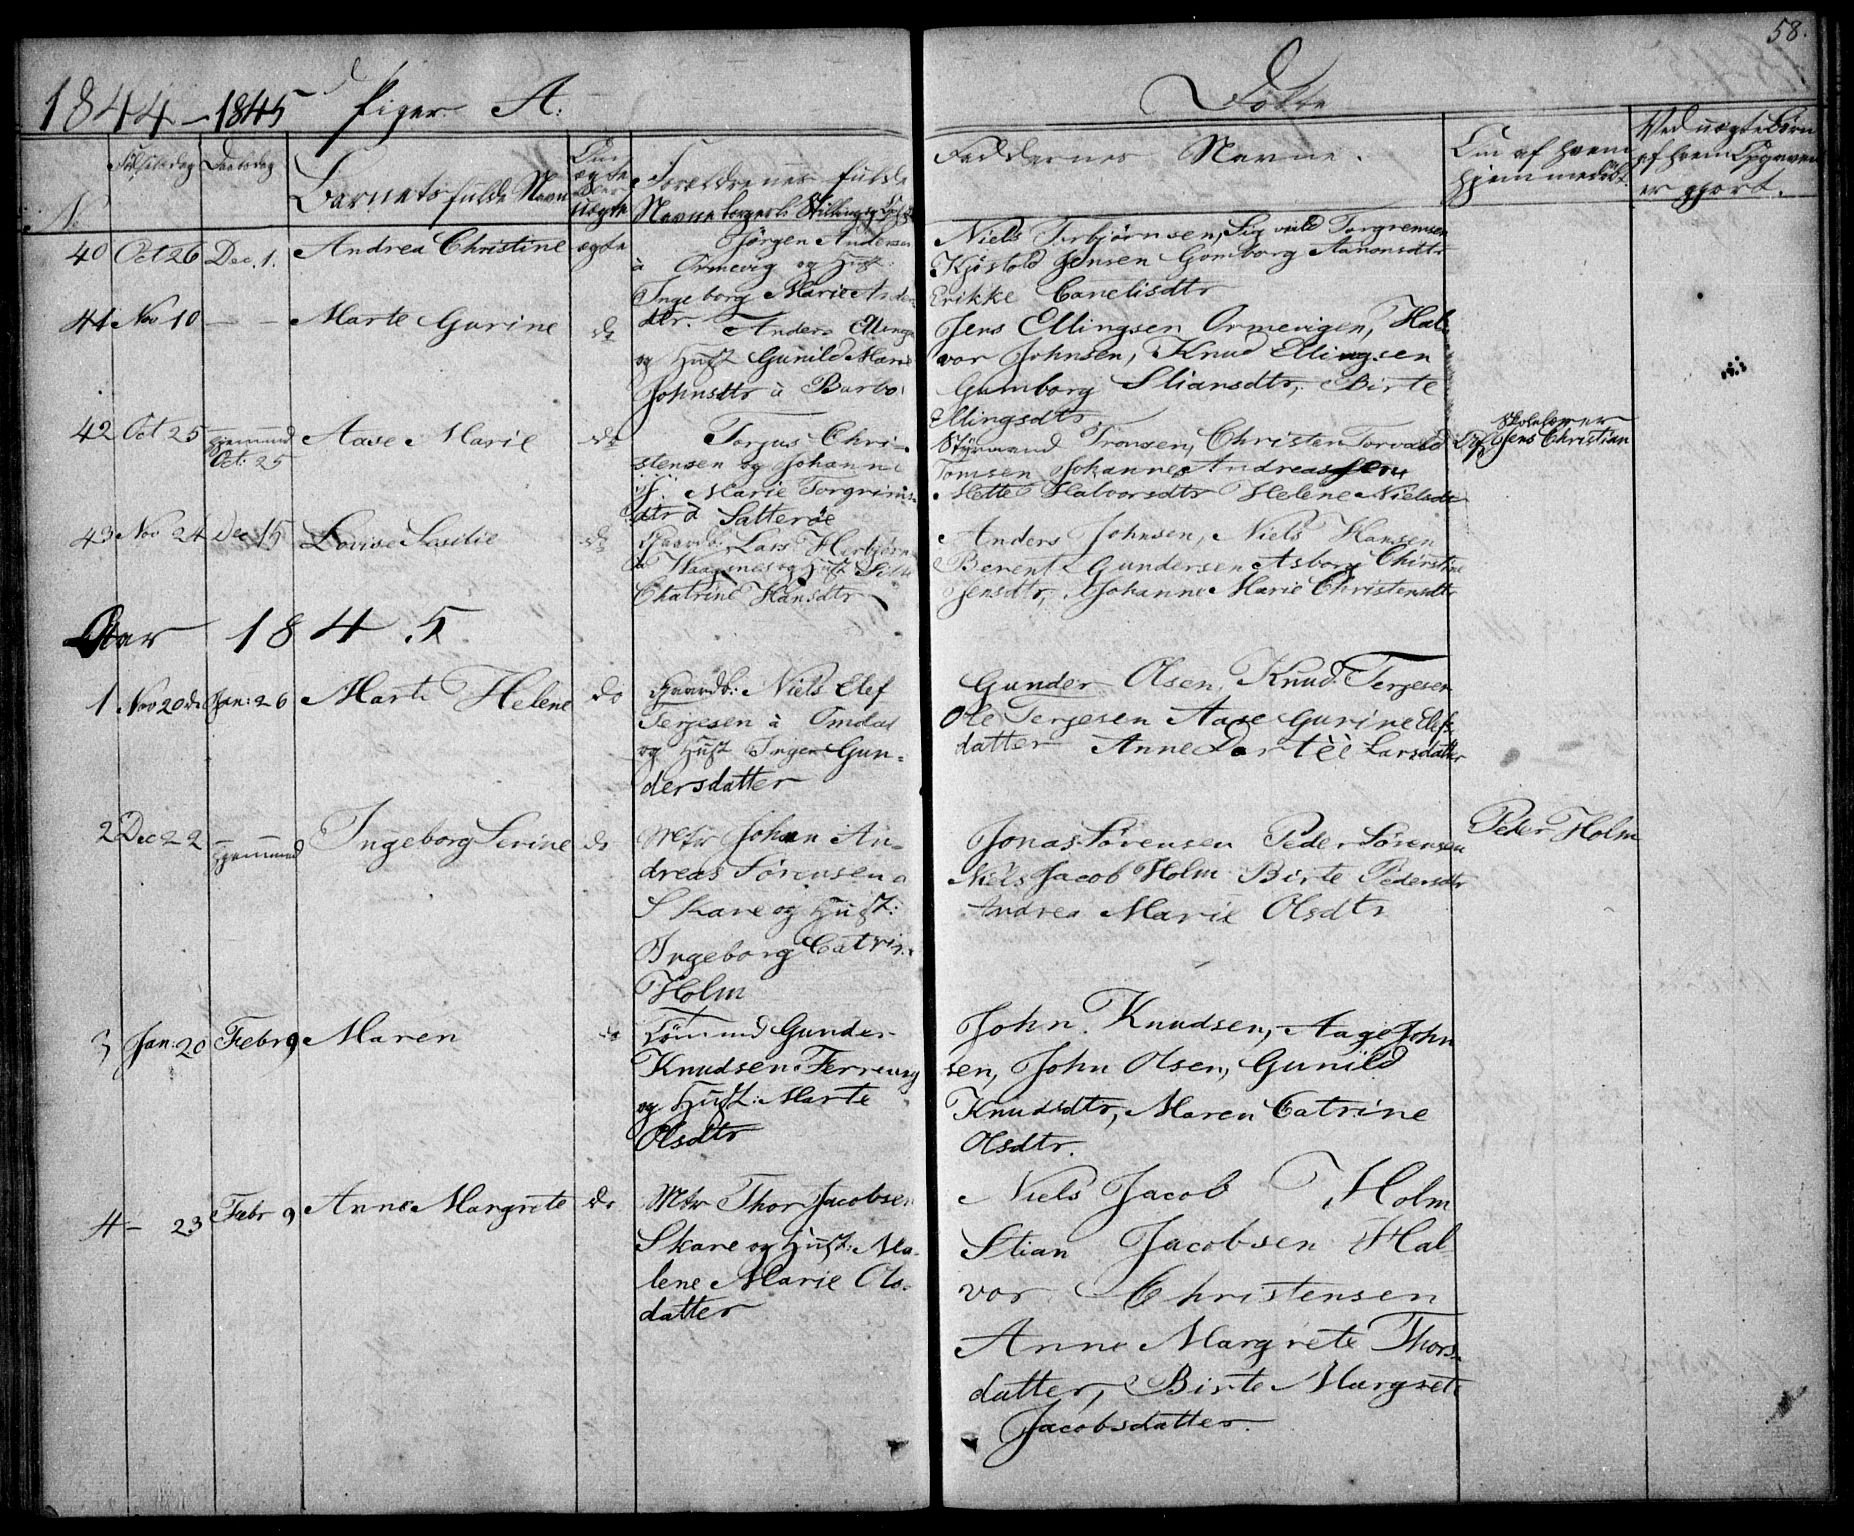 58.
1844 - 1845 Piger A:
Døbte
No
Fødselsdag
Daabsdag
Barnets fulde Navn
Om
ægte
eller
uægte
Forældrenes fulde
Navne Borgerl: Stilling og
Faddernes Navne.
Om af hvem
hjemmedøbt
Ved uægte Børn
af hvem Opgaven
er gjort.
40 Oct 26 Dec. 1. Andrea Christine ægte
Jørgen Andersen
à Ormevig og Hust:
Ingeborg Marie Anders
dtr.
Niels Terbjørnsen, Sigvald Torgrimsen
Kjøstold Jensen Gomborg Aanonsdtr
Erikke Canelisdtr
41 Nov 10 — — Marte Gurine do
Anders Ellings
og Hust Gunild Marie
Johnsdtr à Barbo
Jens Ellingsen Ormevigen, Hal-
vor Johnsen, Knud Ellingsen
Gumborg Stiansdtr, Birte
Ellingsdtr
42 Oct 25 hjemmed Oct: 25 Aase Marie do
Torjus Chri-
stensen og Johanne
Marie Torgrims-
dtr à Satterøe
Styrmand Tronsen, Christen Torvald
Tomsen Johannes Andreassen
Mette Halvorsdtr Helene Nielsdtr
Skolelærer
Jens Christian
43 Nov 24 Dec 15 Lovise Sesilie do
Gaardb: Lars Herbjørns
à Waagsnes og Hust Silli
Chatrine Hansdtr
Anders Johnsen, Niels Hansen
Berent Gundersen Asborg Chirstine
Jensdtr, Johanne Marie Christensdtr
Aar 1845
1 Nov 20de Jan: 26 Marte Helene do
Gaardb: Niels Elef
Terjesen à Omdal
og Hust Inger Gun-
dersdatter
Gunder Olsen, Knud Terjesen
Ole Terjesen Aase Gurine Elefs-
datter Anne Dortèe Larsdatter
2 Dec 22 — hjemmed Ingeborg Serine do
Mtr Johan An-
dreas Sørensen à
Skare og Hust:
Ingeborg Catrine
Holm
Jonas Sørensen Peder Sørensen
Niels Jacob Holm Birte Pedersdtr
Andrea Marie Olsdtr
Peder Holm
3 Jan: 20 Febr 9 Maren do
Tømmd Gunder
Knudsen Ferrevig
og Hust: Marte
Olsdtr
John Knudsen, Aage John
sen, John Olsen, Gunild
Knudsdtr, Maren Catrine
Olsdtr.
4 — 23 Febr 9 Anne Margrete do
Mtr Thor Jacobsen
Skare og Hust: Ma-
lene Marie Ols-
datter
Niels Jacob Holm
Stian Jacobsen Hal
vor Christensen
Anne Margrete Thors-
datter, Birte Margrete
Jacobsdatter.